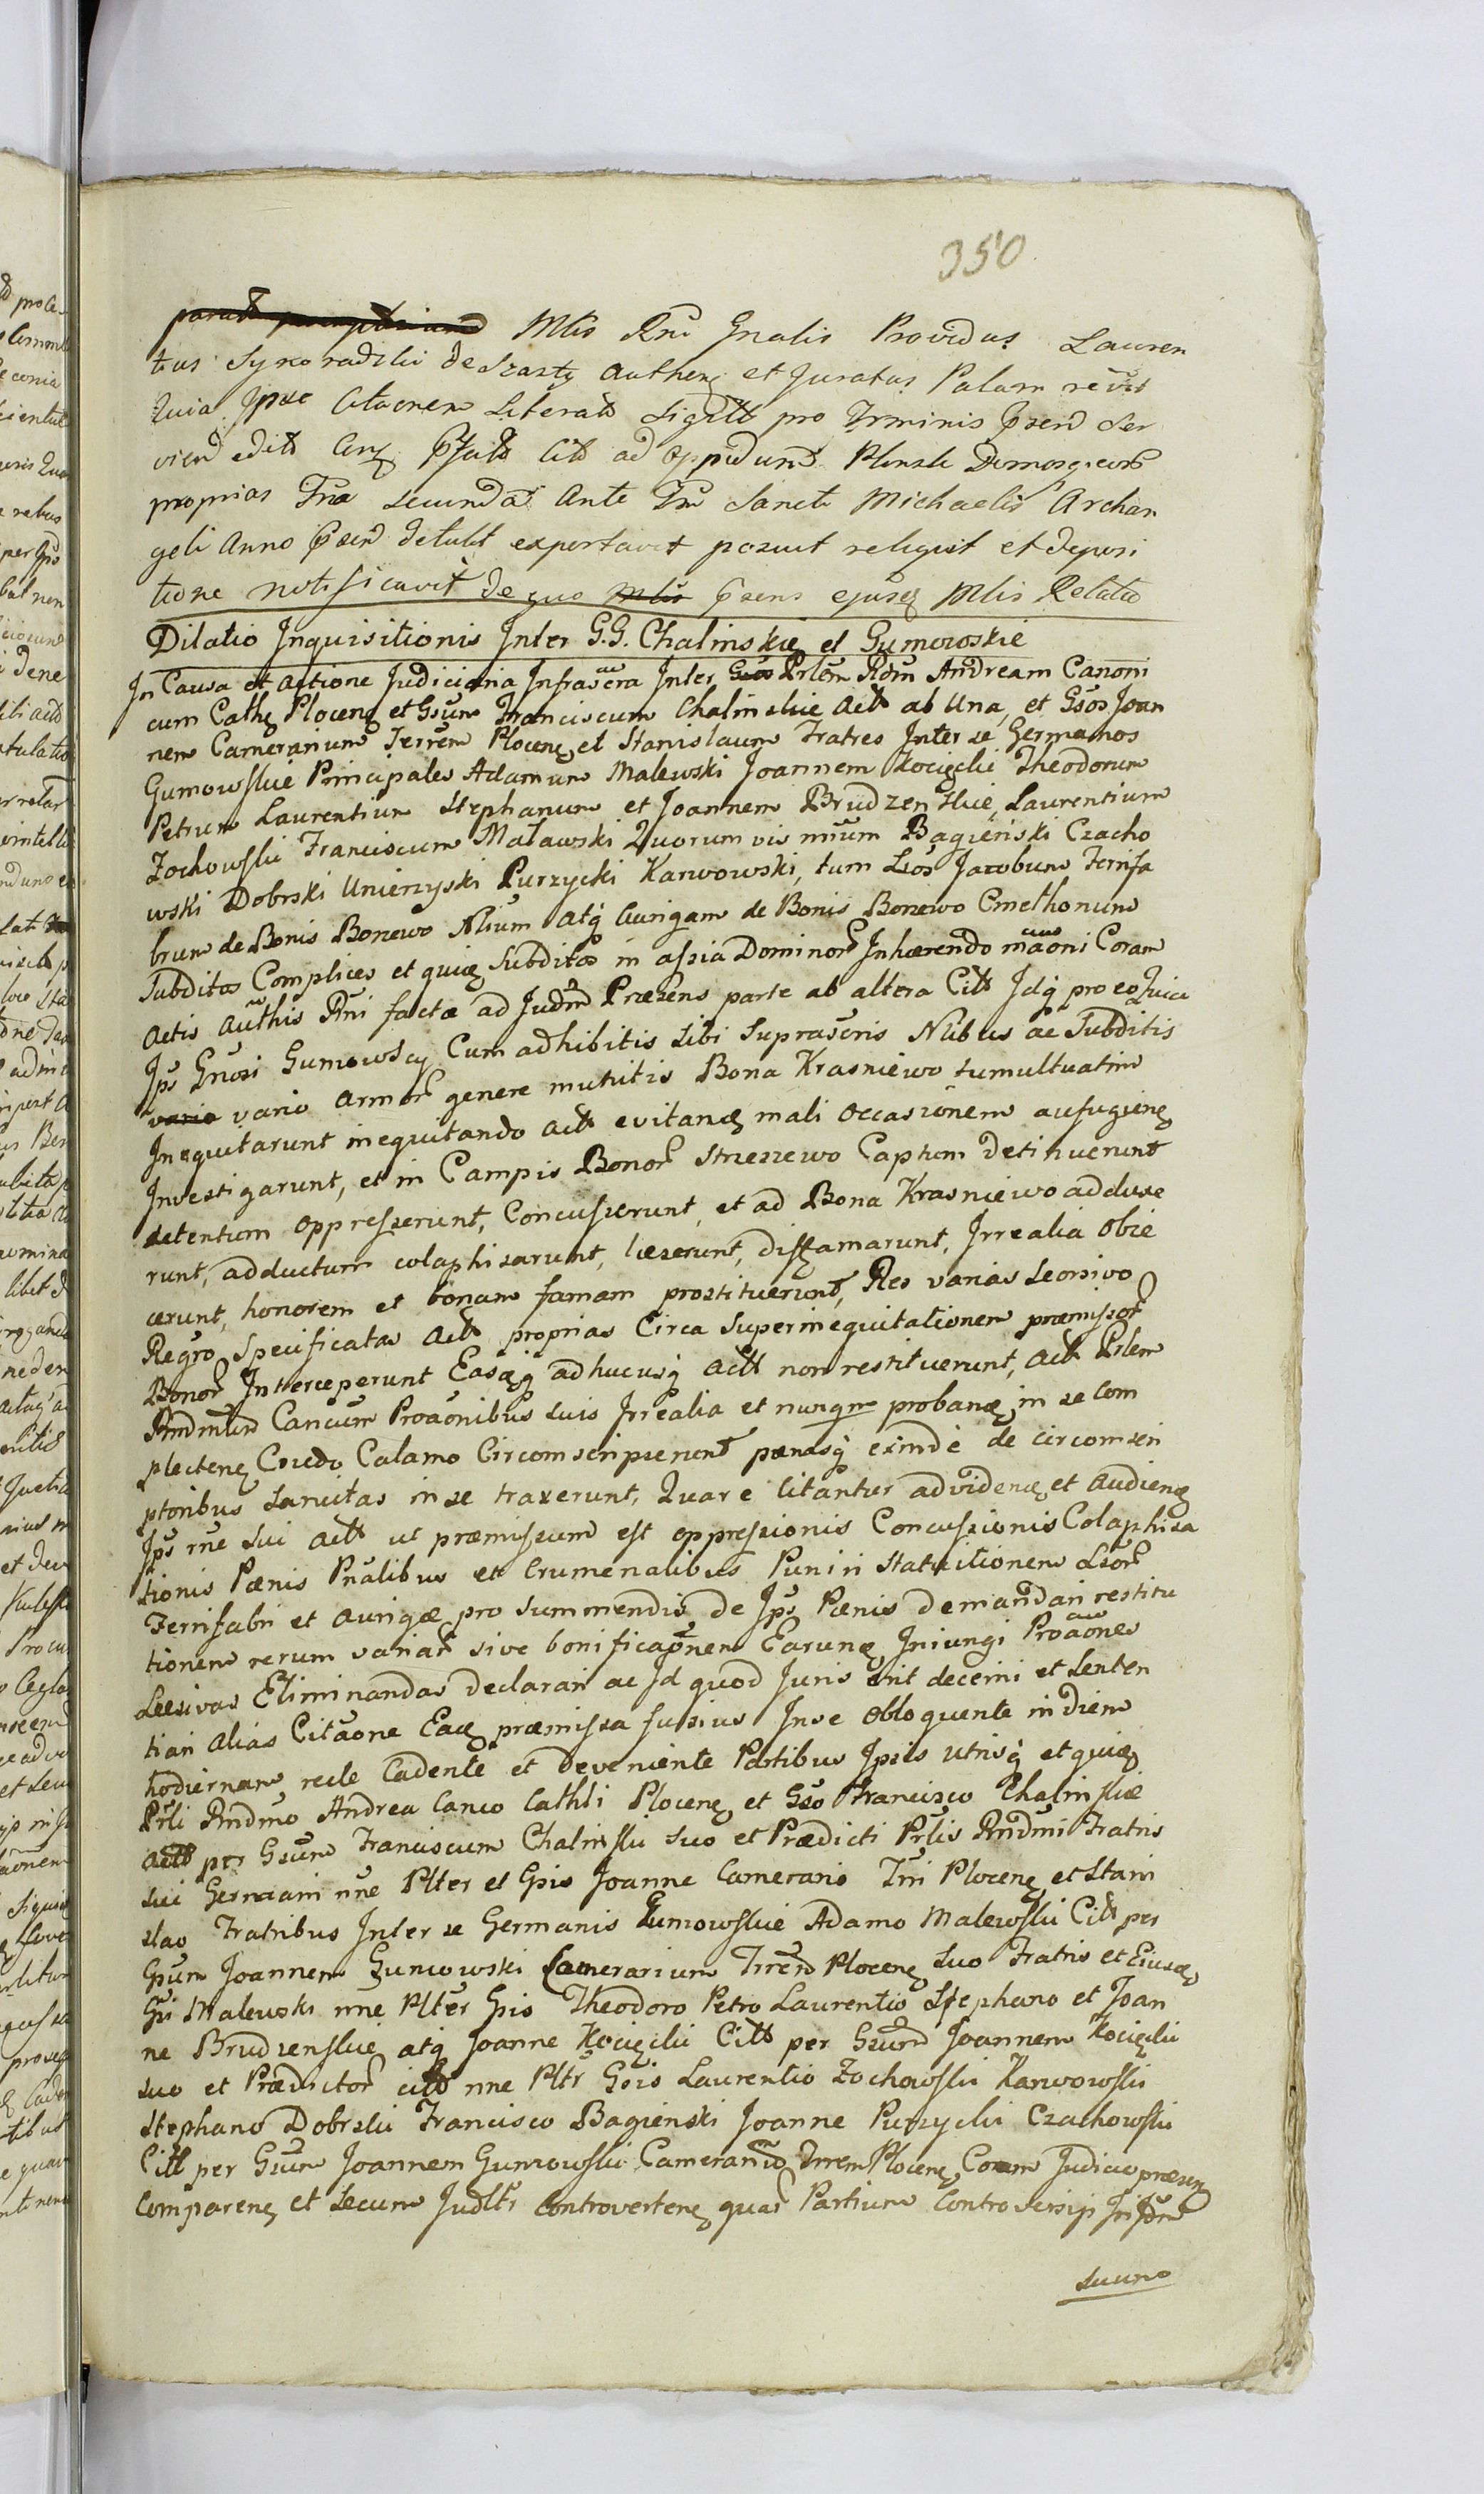 350
Mlis Rni Gnalis Providus Lauren
tius Syroradzki de Szasty authen et Juratus Palam rev
Quia Ipse Citaonem Literato Sigillt pro Trminis Psen Ser
vien edito ad Oppidum Plonsk
proprias Fria secunda Ante Fm Sancti Michaelis Archan
geli Anno Psen detulit exportavit posuit reliquit et deposi
tione notificavit de quo Psens ejusq Mlis Relatio
Dilatio Inquisitionis Inter G.G. Chalinskie et Gumowskie
In Causa et actione Judiciaria Infrascra Inter Prlem Rdm Andream Canoni
cum Cathe Plocen et Gsum Franciscum Chalinskie Actt ab Una, et Gsos Joan
nem Camerarium Terrem Plocen et Stanislaum Fratres Inter se Germanos
Gumowskie Principales Adamum Malewski Joannem Kociecki Theodorum
Petrum Laurentium Stephanum et Joannem Brudzenskie, Laurentium
Zochowski Franciscum Maławski Quorumvis nium Bagieński Czacho
wski Dobrski Unierzyski Purzycki Karwowski, tum Lsos Jacobum Ferrifa
brum de Bonis Bonewo Alium atq Aurigam de Bonis Bonewo Cmethonum
Subditos Complices et quiq Subditos in assia Dominor Inhærendo maoni Coram
Actis authis Rni factæ ad Judm Præsens parte ab altera Citt Idq pro eo Quia
Ips Gnosi Gumowscy Cum adhibitis sibi Suprascris Nlibus ac Subditis
vario vario armor genere munitis Bona Krasniewo tumultuatim
Inequitarunt inequitando actt evitanq mali occasionem aufugienq
Investigarunt, et in Campis Bonor Strzeszewo Captum detinuerunt
detentum oppresserunt, Concusserunt, et ad Bona Krasniewo adduxe
runt, adductum colaphisarunt, læserunt, diffamarunt, Irrealia obie
cerunt, honorem et bonam famam prostituerunt, Res varias seorsivo
Regro Specificatas actt proprias Circa Superinequitationem præmissor
Bonor Interceperunt Easq adhucusq actt non restituerunt, actt Prlem
Rndmum Cancum Proaonibus suis Irrealia et nunqm probanq in se com
plecten Credo Calamo Circomscripserunt pænasq eximdè de circomscri
ptoribus sancitas in se traxerunt, Quare Citantur ad videnq et audienq
Ips rne sui actt ut præmissum est oppressionis Concussionis Colaphisa
tionis Pænis Pnalibus et Crumenalibus Puniri Statuitionem Lsor
Ferrifabri et aurigæ pro summendis de Ips Pænis demandari restitu
tionem rerum variar sive bonificaonem Earunq Iniungi Proaones
Læsivas Eliminandas declarari ac Id quod Juris erit decerni et senten
tiari alias Citaone Eaq præmissa fusius In se obloquente in diem
hodiernam recte Cadente et deveniente Partibus Ipsis utrisq et quiq
Prli Rndmo Andrea Canco Cathli Plocen et Gso Francisco Chalinskie
actt per Gsum Franciscum Chalinski suo et Prædicti Prlis Rndmi Fratris
sui Germani nne Plter et Gsis Joanne Camerario Trri Plocen et Stani
slao Fratribus Inter se Germanis Gumowskie Adamo Malewski Citt per
Gsum Joannem Gumowski Camerarium Trrem Plocen suo Fratris et Eiusq
Gsi Malewski nne Plter Gsis Theodoro Petro Laurentio Stephano et Joan
ne Brudzenskie atq Joanne Kociecki Citt per Gsum Joannem Kociecki
suo et Prædictor citt nne Pltr Gsis Laurentio Zochowski Karwowski
Stephano Dobrski Francisco Bagieński Joanne Purzycki Czachowski
Citt per Gsum Joannem Gumowski Camerario Trrem Plocen Coram Judicio præsen
Comparen et secum Judltr Controverten quar Partium Controversijs
suum